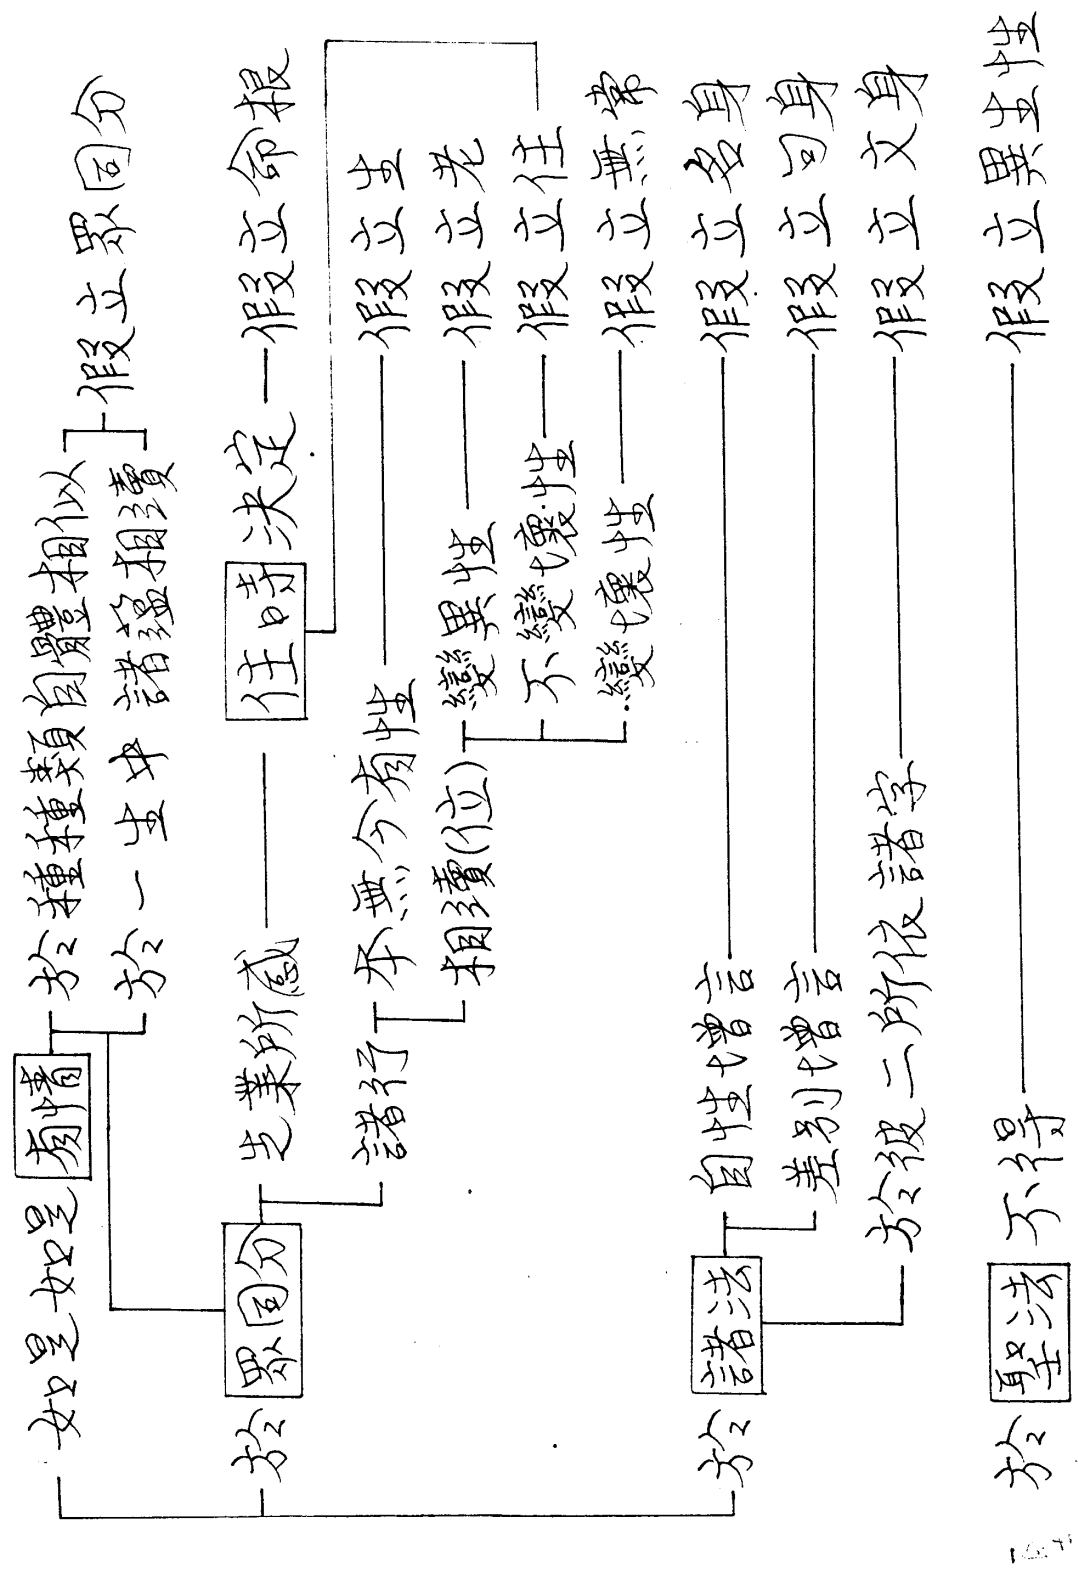 如是如是有情
於種種類自體相似
於一生中諸蘊相續
假立眾同分
於眾同分
先業所感
住時決定
假立命根
諸行
本無今有性
假立生
相續(位)
變異性
假立老
不變壞性
假立住
變壞性
假立無常
於諸法
自性增言
假立名身
差別增言
假立句身
於彼二所依諸字
假立文身
於聖法不得
假立異生性